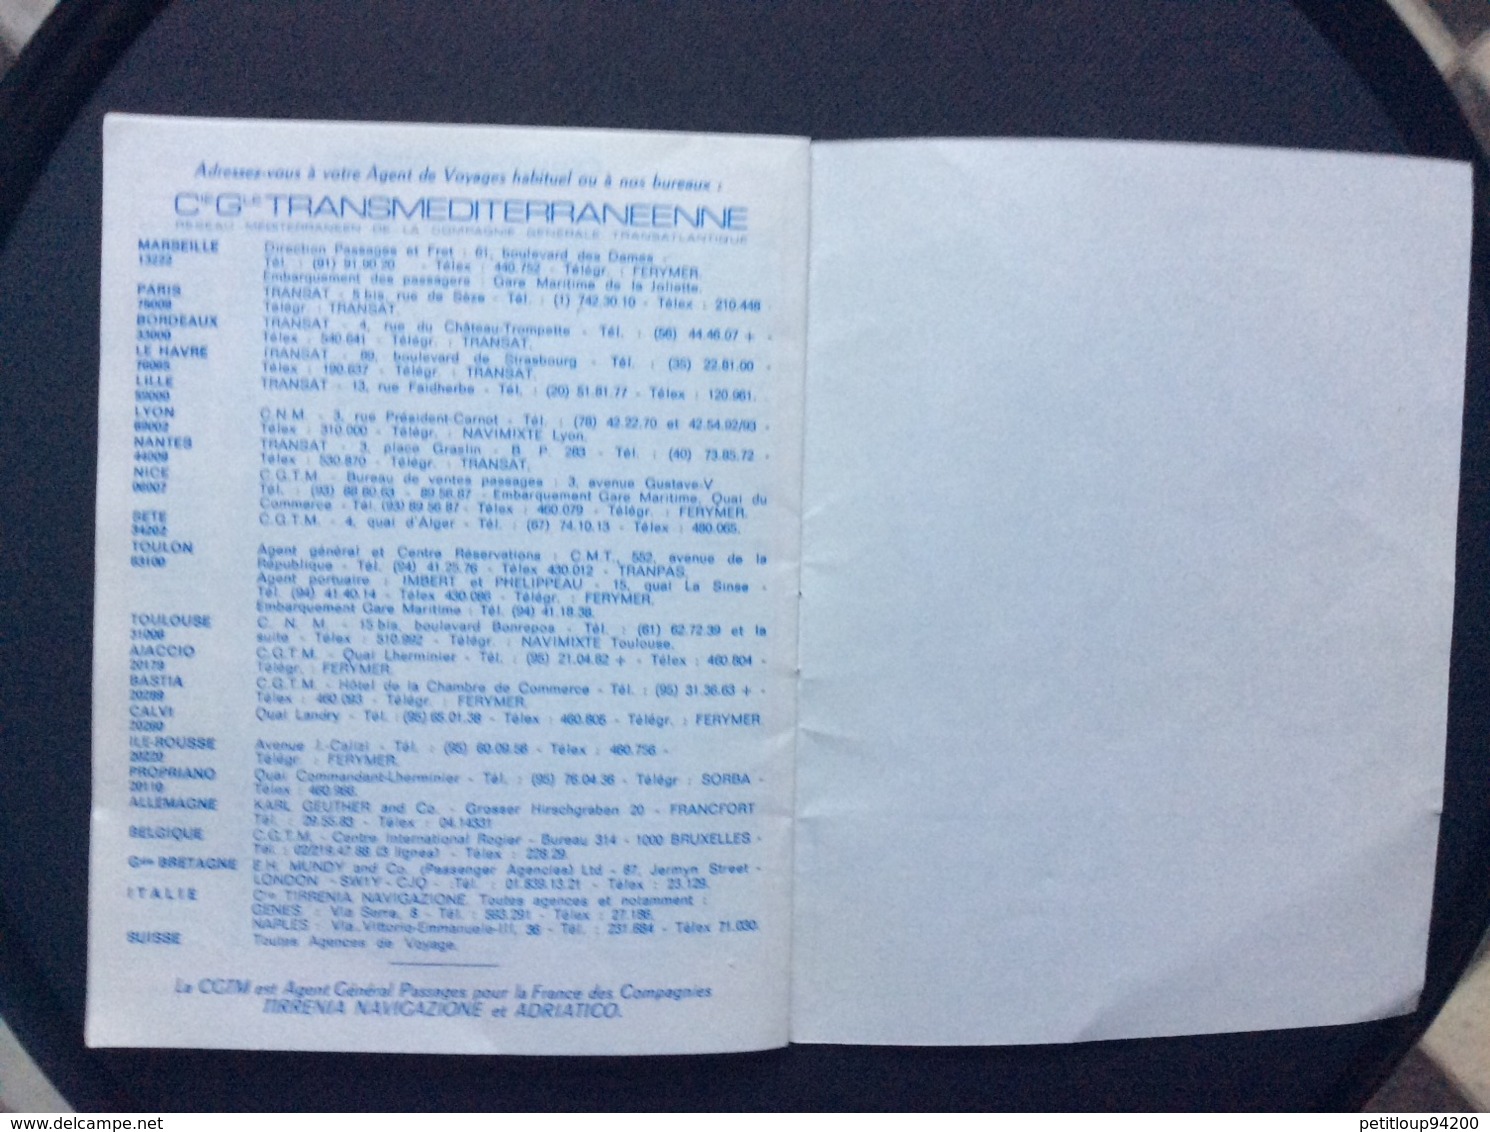 Adressez-vous à votre Agent de Voyages habituel ou à nos bureaux :
CIE GLE TRANSMEDITERRANEENNE
RESEAU MEDITERRANEEN DE LA COMPAGNIE GENERALE TRANSATLANTIQUE
MARSEILLE Direction Passages et Fret : 61, boulevard des Dames -
13222 Tél. : (91) 91.90.20 - Télex : 440.752 - Télégr. : FERYMER.
Embarquement des passagers : Gare Maritime de la Joliette.
PARIS TRANSAT - 6 bis, rue de Sèze - Tél. : (1) 742.30.10 - Télex : 210.448 -
75009 Télégr. : TRANSAT.
BORDEAUX TRANSAT - 4, rue du Château-Trompette - Tél. : (56) 44.46.07 + -
33000 Télex : 540.641 - Télégr. : TRANSAT.
LE HAVRE TRANSAT - 89, boulevard de Strasbourg - Tél. : (35) 22.81.00 -
76065 Télex : 190.637 - Télégr. : TRANSAT.
LILLE TRANSAT - 13, rue Faidherbe - Tél. : (20) 51.81.77 - Télex : 120.961.
59000
LYON C.N.M. - 3, rue Président-Carnot - Tél. : (78) 42.22.70 et 42.54.92/93 -
69002 Télex : 310.000 - Télégr. : NAVIMIXTE Lyon.
NANTES TRANSAT - 3, place Graslin - B. P. 283 - Tél. : (40) 73.85.72 -
44009 Télex : 530.870 - Télégr. : TRANSAT.
NICE C.G.T.M. - Bureau de ventes passages : 3, avenue Gustave-V
06007 Tél. : (93) 88.80.63 - 89.56.87 - Embarquement Gare Maritime, Quai du
Commerce - Tél. (93) 89.56.87 - Télex : 460.079 - Télégr. : FERYMER.
SETE C.G.T.M. - 4, quai d'Alger - Tél. : (67) 74.10.13 - Télex : 480.065.
34202
TOULON Agent général et Centre Réservations : C.M.T., 552, avenue de la
83100 République - Tél. (94) 41.25.76 - Télex 430.012 - TRANPAS.
Agent portuaire : IMBERT et PHELIPPEAU - 15, quai La Sinse -
Tél. (94) 41.40.14 - Télex 430.086 - Télégr. : FERYMER.
Embarquement Gare Maritime : Tél. (94) 41.18.38.
TOULOUSE C. N. M. - 15 bis, boulevard Bonrepos - Tél. : (61) 62.72.39 et la
31008 suite - Télex : 510.992 - Télégr. : NAVIMIXTE Toulouse.
AJACCIO C.G.T.M. - Quai Lherminier - Tél. : (95) 21.04.82 + - Télex : 460.804 -
20179 Télégr. : FERYMER.
BASTIA C.G.T.M. - Hôtel de la Chambre de Commerce - Tél. : (95) 31.36.63 + -
20289 Télex : 460.093 - Télégr. : FERYMER.
CALVI Quai Landry - Tél. : (95) 65.01.38 - Télex : 460.806 - Télégr. : FERYMER.
20260
ILE-ROUSSE Avenue J.-Calizi - Tél. : (95) 60.09.56 - Télex : 460.756 -
20220 Télégr. : FERYMER.
PROPRIANO Quai Commandant-Lherminier - Tél. : (95) 76.04.36 - Télégr : SORBA -
20110 Télex : 460.986.
ALLEMAGNE KARL GEUTHER and Co. - Grosser Hirschgraben 20 - FRANCFORT
Tél. : 29.55.83 - Télex : 04.14331
BELGIQUE C.G.T.M. - Centre International Rogier - Bureau 314 - 1000 BRUXELLES -
Tél. : 02/218.47.88 (3 lignes) - Télex : 228.29.
Gde BRETAGNE E.H. MUNDY and Co. (Passenger Agencies) Ltd - 87, Jermyn Street -
LONDON - SW1Y - CJQ - Tél. : 01.839.13.21 - Télex : 23.129.
ITALIE Cie TIRRENIA NAVIGAZIONE. Toutes agences et notamment :
GENES : Via Serra, 8 - Tél. : 563.291 - Télex : 27.186.
NAPLES : Via Vittorio-Emmanuele-III, 36 - Tél. : 231.684 - Télex 71.030.
SUISSE Toutes Agences de Voyage.
La CGTM est Agent Général Passages pour la France des Compagnies
TIRRENIA NAVIGAZIONE et ADRIATICO.
delcampe.net
petitloup94200